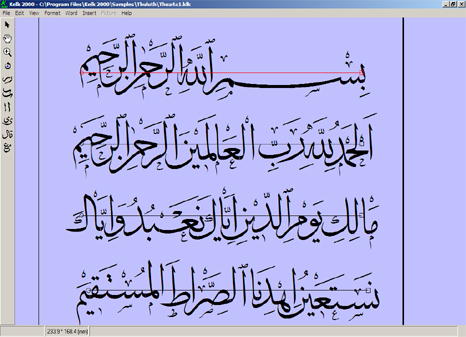 Kelk 2000 - C:\Program Files\Kelk 2000\Samples\Thuluth\Thuartx1.klk
File Edit View Format Word Insert Picture Help
بِسْمِ اللَّهِ الرَّحْمٰنِ الرَّحِيمِ
اَلْحَمْدُ لِلّٰهِ رَبِّ الْعَالَمِينَ الرَّحْمٰنِ الرَّحِيمِ
مَالِكِ يَوْمِ الدِّينِ اِيَّاكَ نَعْبُدُ وَاِيَّاكَ
نَسْتَعِينُ اِهْدِنَا الصِّرَاطَ الْمُسْتَقِيمَ
233.9 * 168.4 (mm)